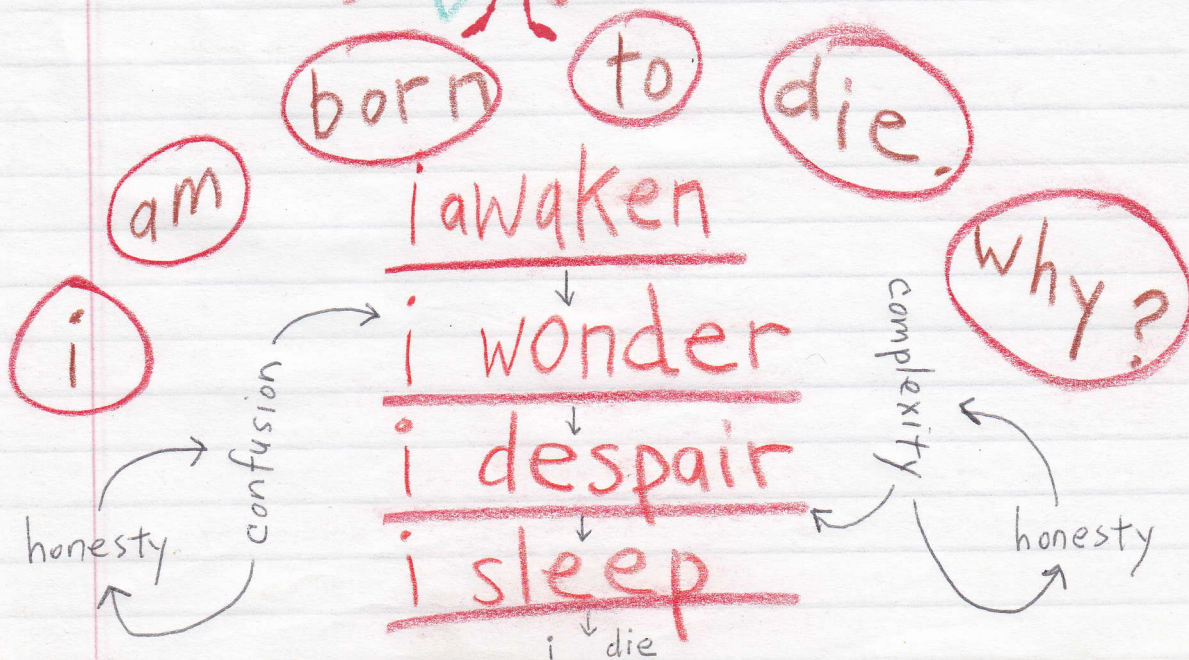 i am born to die. why?
i awaken
i wonder
i despair
i sleep
i die
confusion
honesty
complexity
honesty